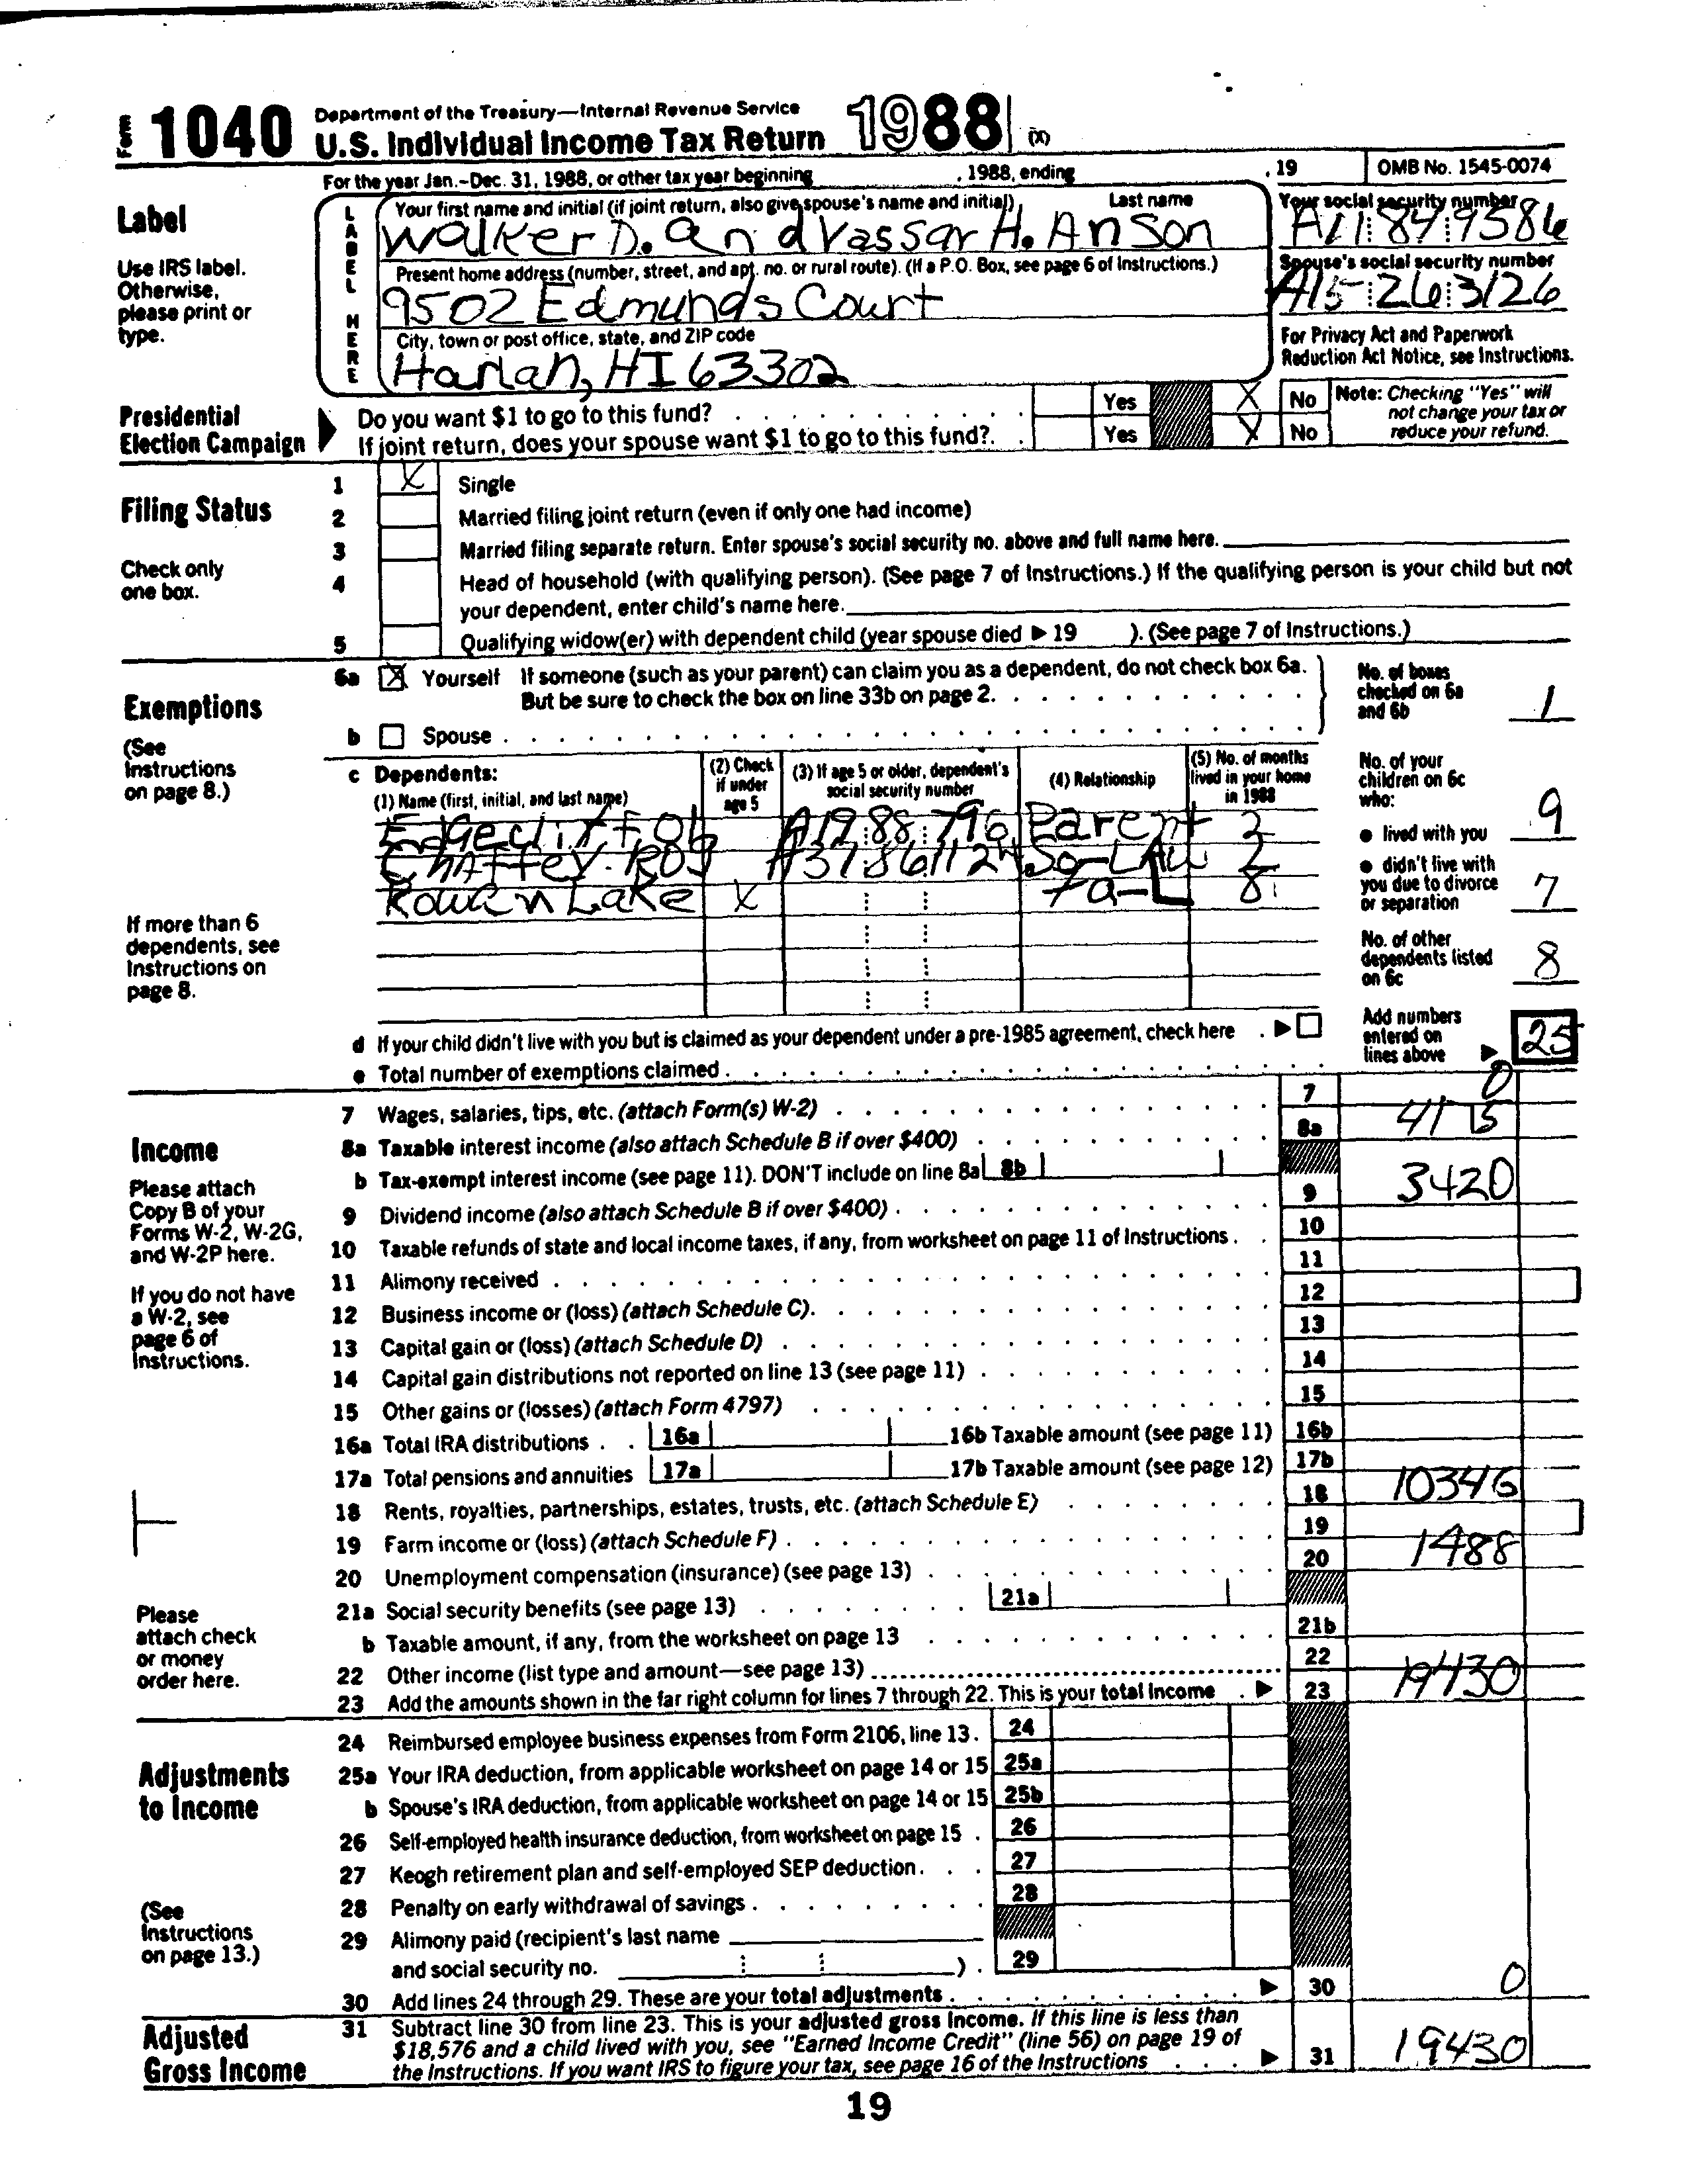 Form 1040 Department of the Treasury—Internal Revenue Service
U.S. Individual Income Tax Return 1988 (X)
For the year Jan.-Dec. 31, 1988, or other tax year beginning , 1988, ending , 19 OMB No. 1545-0074
Label
Use IRS label.
Otherwise,
please print or
type.
LABEL HERE
Your first name and initial (if joint return, also give spouse's name and initial) Last name
Walker D. and Vassar H. Anson
Your social security number
A11 84 9586
Present home address (number, street, and apt. no. or rural route). (If a P.O. Box, see page 6 of Instructions.)
9502 Edmunds Court
Spouse's social security number
A15 26 3126
City, town or post office, state, and ZIP code
Harlan, HI 63302
For Privacy Act and Paperwork
Reduction Act Notice, see Instructions.
Presidential
Election Campaign
Do you want $1 to go to this fund? Yes X No
If joint return, does your spouse want $1 to go to this fund?. Yes X No
Note: Checking "Yes" will
not change your tax or
reduce your refund.
Filing Status
Check only
one box.
1 X Single
2 Married filing joint return (even if only one had income)
3 Married filing separate return. Enter spouse's social security no. above and full name here.
4 Head of household (with qualifying person). (See page 7 of Instructions.) If the qualifying person is your child but not
your dependent, enter child's name here.
5 Qualifying widow(er) with dependent child (year spouse died ▶ 19 ). (See page 7 of Instructions.)
Exemptions
(See
Instructions
on page 8.)
If more than 6
dependents, see
Instructions on
page 8.
6a X Yourself If someone (such as your parent) can claim you as a dependent, do not check box 6a.
But be sure to check the box on line 33b on page 2.
b Spouse
No. of boxes
checked on 6a
and 6b 1
c Dependents:
(1) Name (first, initial, and last name)
(2) Check
if under
age 5
(3) If age 5 or older, dependent's
social security number
(4) Relationship
(5) No. of months
lived in your home
in 1988
Parent
Rowan Lake X 8
No. of your
children on 6c
who:
● lived with you 9
● didn't live with
you due to divorce
or separation 7
No. of other
dependents listed
on 6c 8
d If your child didn't live with you but is claimed as your dependent under a pre-1985 agreement, check here ▶
e Total number of exemptions claimed
Add numbers
entered on
lines above ▶ 25
Income
Please attach
Copy B of your
Forms W-2, W-2G,
and W-2P here.
If you do not have
a W-2, see
page 6 of
Instructions.
Please
attach check
or money
order here.
7 Wages, salaries, tips, etc. (attach Form(s) W-2) 7 0
8a Taxable interest income (also attach Schedule B if over $400) 8a 4175
b Tax-exempt interest income (see page 11). DON'T include on line 8a 8b
9 Dividend income (also attach Schedule B if over $400) 9 3420
10 Taxable refunds of state and local income taxes, if any, from worksheet on page 11 of Instructions 10
11 Alimony received 11
12 Business income or (loss) (attach Schedule C). 12
13 Capital gain or (loss) (attach Schedule D) 13
14 Capital gain distributions not reported on line 13 (see page 11) 14
15 Other gains or (losses) (attach Form 4797) 15
16a Total IRA distributions 16a 16b Taxable amount (see page 11) 16b
17a Total pensions and annuities 17a 17b Taxable amount (see page 12) 17b
18 Rents, royalties, partnerships, estates, trusts, etc. (attach Schedule E) 18 10346
19 Farm income or (loss) (attach Schedule F) 19
20 Unemployment compensation (insurance) (see page 13) 20 1488
21a Social security benefits (see page 13) 21a
b Taxable amount, if any, from the worksheet on page 13 21b
22 Other income (list type and amount—see page 13) 22
23 Add the amounts shown in the far right column for lines 7 through 22. This is your total income ▶ 23 19430
Adjustments
to Income
(See
Instructions
on page 13.)
24 Reimbursed employee business expenses from Form 2106, line 13. 24
25a Your IRA deduction, from applicable worksheet on page 14 or 15 25a
b Spouse's IRA deduction, from applicable worksheet on page 14 or 15 25b
26 Self-employed health insurance deduction, from worksheet on page 15 26
27 Keogh retirement plan and self-employed SEP deduction 27
28 Penalty on early withdrawal of savings 28
29 Alimony paid (recipient's last name
and social security no. ) 29
30 Add lines 24 through 29. These are your total adjustments ▶ 30 0
Adjusted
Gross Income
31 Subtract line 30 from line 23. This is your adjusted gross income. If this line is less than
$18,576 and a child lived with you, see "Earned Income Credit" (line 56) on page 19 of
the Instructions. If you want IRS to figure your tax, see page 16 of the Instructions ▶ 31 19430
19